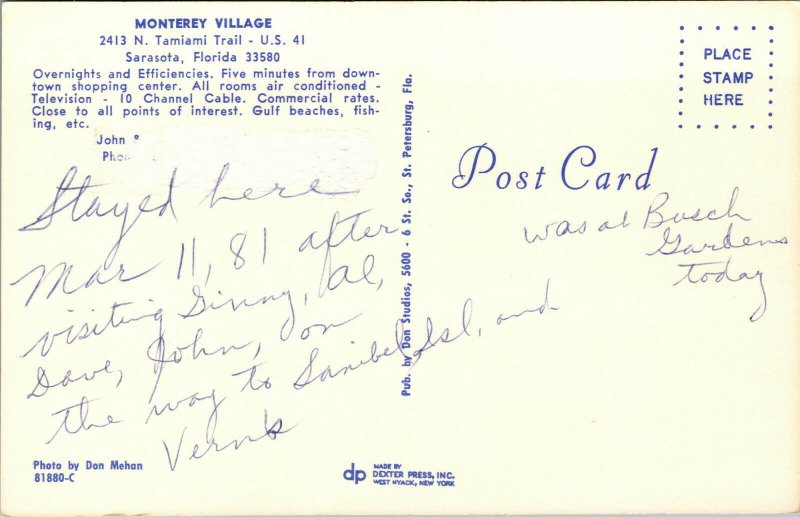 MONTEREY VILLAGE
2413 N. Tamiami Trail - U.S. 41
Sarasota, Florida 33580
Overnights and Efficiencies. Five minutes from down-
town shopping center. All rooms air conditioned -
Television - 10 Channel Cable. Commercial rates.
Close to all points of interest. Gulf beaches, fish-
ing, etc.
John
Stayed here
Mar 11, 81 after
visiting Ginny, Al,
Dave, John, on
the way to Sanibel Isl, and
Vern's
Photo by Don Mehan
81880-C
Pub. by Don Studios, 5600 - 6 St. So., St. Petersburg, Fla.
PLACE
STAMP
HERE
Post Card
was at Busch
Gardens
today
dp
MADE BY
DEXTER PRESS, INC.
WEST NYACK, NEW YORK